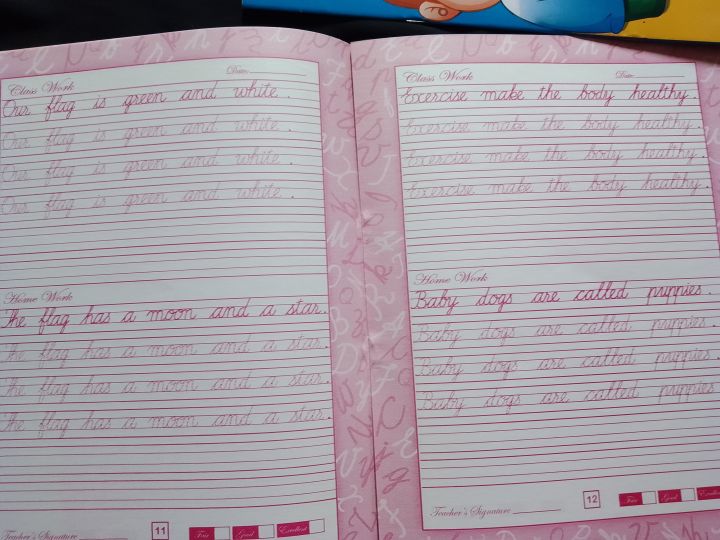 Class Work
Date
Our flag is green and white.
Our flag is green and white.
Our flag is green and white.
Our flag is green and white.
Home Work
The flag has a moon and a star.
The flag has a moon and a star.
The flag has a moon and a star.
The flag has a moon and a star.
Teacher's Signature
11
Fair
Good
Excellent
Class Work
Date
Exercise make the body healthy.
Exercise make the body healthy.
Exercise make the body healthy.
Exercise make the body healthy.
Home Work
Baby dogs are called puppies.
Baby dogs are called puppies.
Baby dogs are called puppies.
Baby dogs are called puppies
Teacher's Signature
12
Fair
Good
Excellent